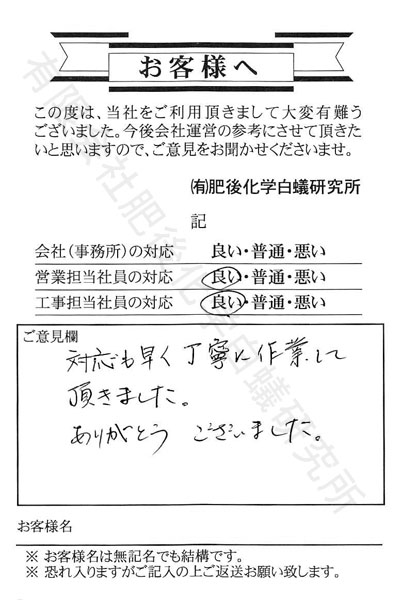 お客様へ
この度は、当社をご利用頂きまして大変有難う
ございました。今後会社運営の参考にさせて頂きた
いと思いますので、ご意見をお聞かせくださいませ。
㈲肥後化学白蟻研究所
記
会社（事務所）の対応 良い・普通・悪い
営業担当社員の対応 良い・普通・悪い
工事担当社員の対応 良い・普通・悪い
ご意見欄
対応も早く丁寧に作業して
頂きました。
ありがとう ございました。
お客様名
※ お客様名は無記名でも結構です。
※ 恐れ入りますがご記入の上ご返送お願い致します。
有限会社肥後化学白蟻研究所